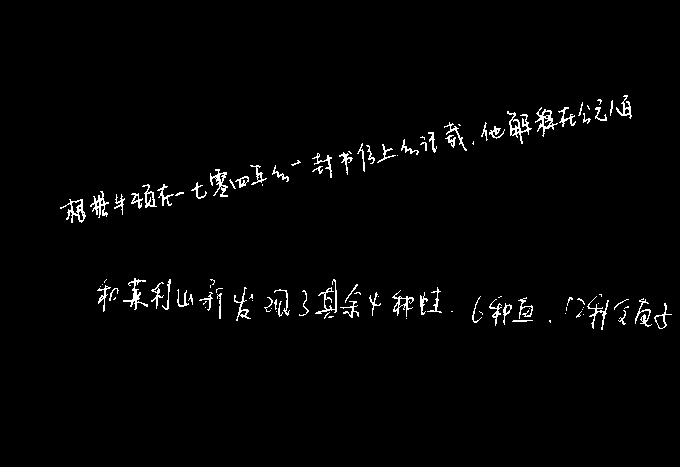 根据牛顿在一七零四年的一封书信上的记载,他解释在公元1百
和莱利山新发现了其余4种蛙、6种鱼、12种